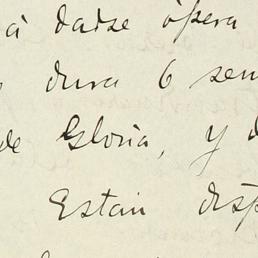 á darse ópera
dura 6 sem
de Gloria, y d
Estan disp